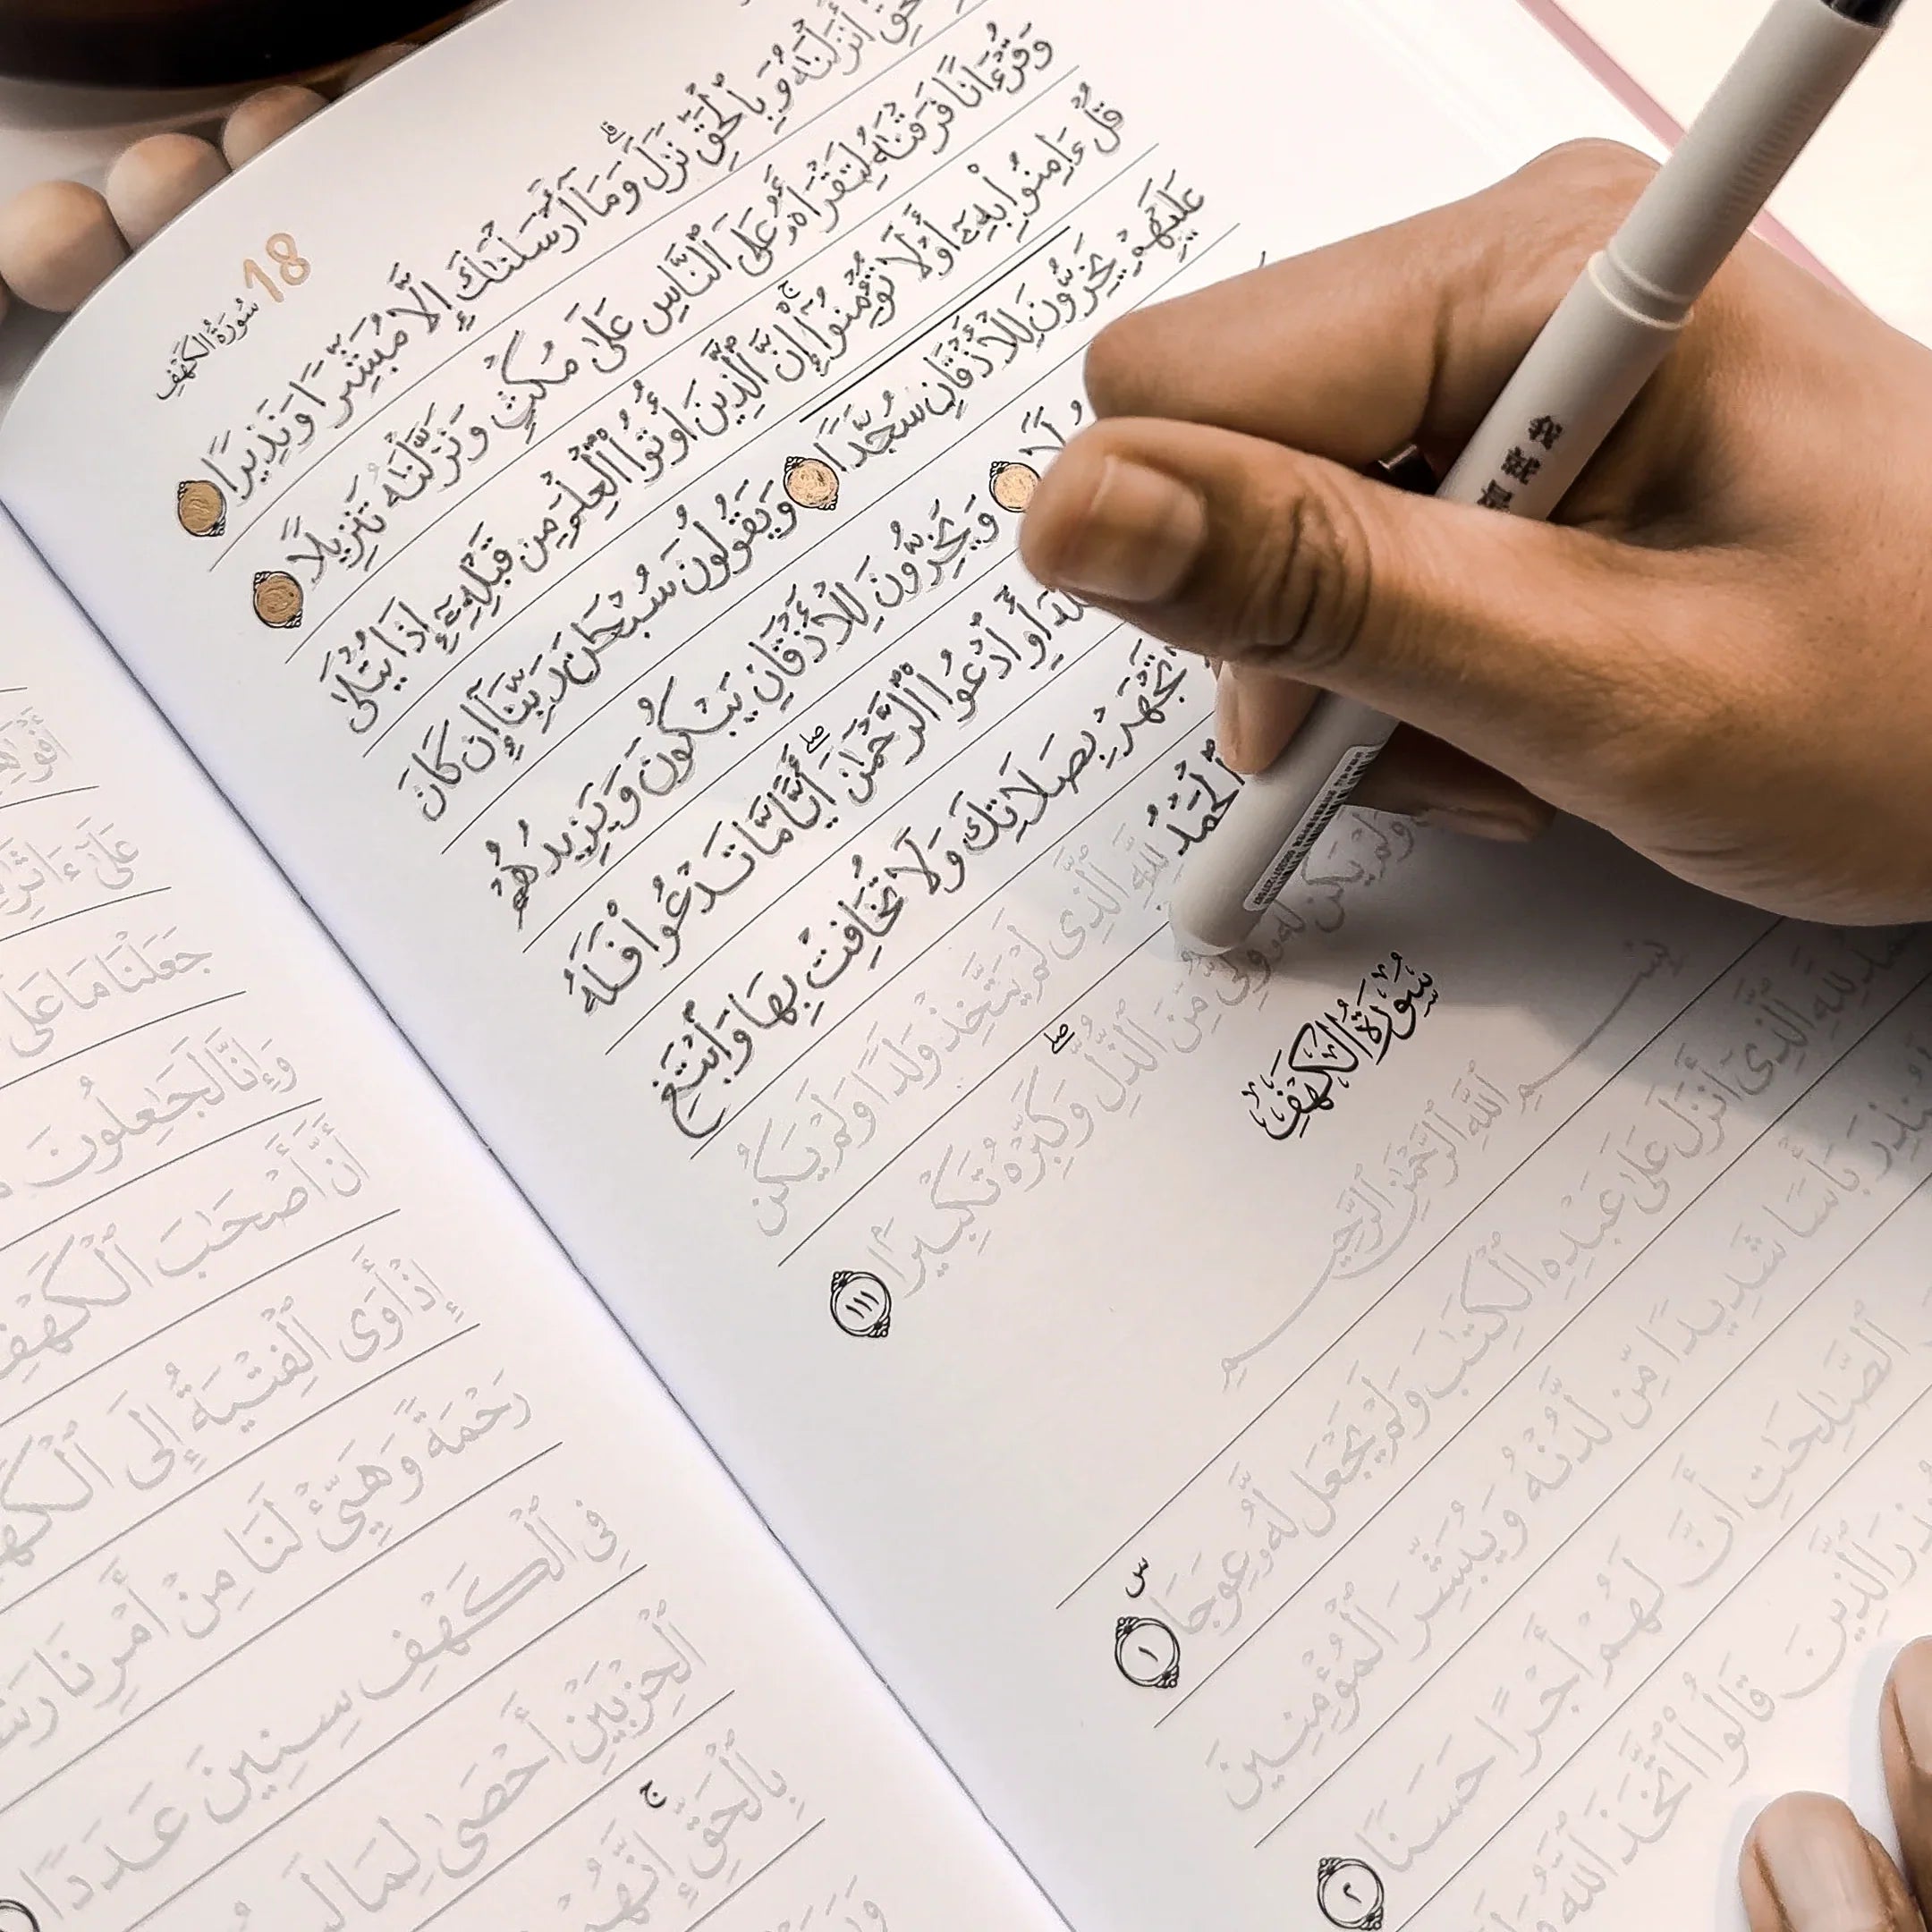 18
سُورَةُ الكَهْفِ
أَنزَلْنَٰهُ وَبِٱلْحَقِّ نَزَلَ ۗ وَمَآ أَرْسَلْنَٰكَ إِلَّا مُبَشِّرًا وَنَذِيرًا
وَقُرْءَانًا فَرَقْنَٰهُ لِتَقْرَأَهُۥ عَلَى ٱلنَّاسِ عَلَىٰ مُكْثٍ وَنَزَّلْنَٰهُ تَنزِيلًا
قُلْ ءَامِنُوا۟ بِهِۦٓ أَوْ لَا تُؤْمِنُوٓا۟ ۚ إِنَّ ٱلَّذِينَ أُوتُوا۟ ٱلْعِلْمَ مِن قَبْلِهِۦٓ إِذَا يُتْلَىٰ
عَلَيْهِمْ يَخِرُّونَ لِلْأَذْقَانِ سُجَّدًا وَيَقُولُونَ سُبْحَٰنَ رَبِّنَآ إِن كَانَ
وَيَخِرُّونَ لِلْأَذْقَانِ يَبْكُونَ وَيَزِيدُهُمْ
أَوِ ٱدْعُوا۟ ٱلرَّحْمَٰنَ ۖ أَيًّا مَّا تَدْعُوا۟ فَلَهُ
تَجْهَرْ بِصَلَاتِكَ وَلَا تُخَافِتْ بِهَا وَٱبْتَغِ
ٱلْحَمْدُ لِلَّهِ ٱلَّذِى لَمْ يَتَّخِذْ وَلَدًا وَلَمْ يَكُن
وَلَمْ يَكُن لَّهُۥ وَلِىٌّ مِّنَ ٱلذُّلِّ ۖ وَكَبِّرْهُ تَكْبِيرًۢا ١١١
سُورَةُ الْكَهْفِ
بِسْمِ ٱللَّهِ ٱلرَّحْمَٰنِ ٱلرَّحِيمِ
لِلَّهِ ٱلَّذِىٓ أَنزَلَ عَلَىٰ عَبْدِهِ ٱلْكِتَٰبَ وَلَمْ يَجْعَل لَّهُۥ عِوَجَا ۜ ١
بَأْسًا شَدِيدًا مِّن لَّدُنْهُ وَيُبَشِّرَ ٱلْمُؤْمِنِينَ
ٱلصَّٰلِحَٰتِ أَنَّ لَهُمْ أَجْرًا حَسَنًا ٢
ٱلَّذِينَ قَالُوا۟ ٱتَّخَذَ ٱللَّهُ
عَلَىٰٓ
جَعَلْنَا مَا عَلَى
وَإِنَّا لَجَٰعِلُونَ
أَنَّ أَصْحَٰبَ ٱلْكَهْفِ
إِذْ أَوَى ٱلْفِتْيَةُ إِلَى
رَحْمَةً وَهَيِّئْ لَنَا مِنْ أَمْرِنَا
فِى ٱلْكَهْفِ سِنِينَ عَدَدًا
ٱلْحِزْبَيْنِ أَحْصَىٰ لِمَا
بِٱلْحَقِّ ۚ إِنَّهُمْ